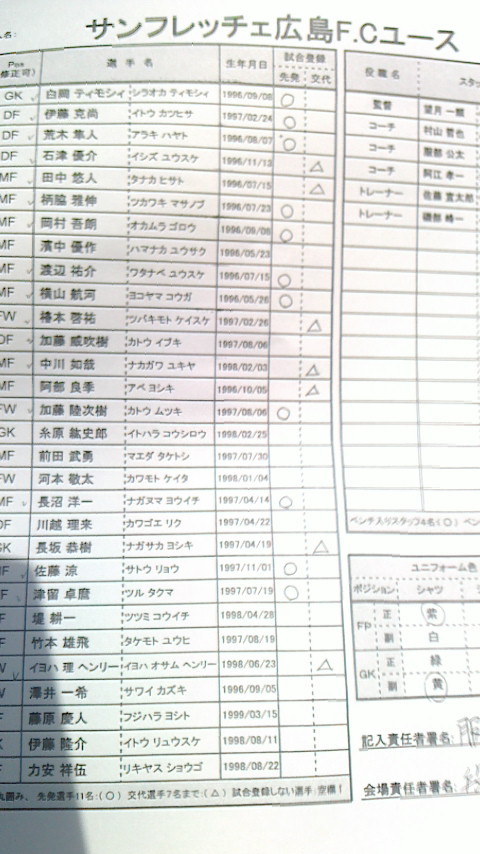 サンフレッチェ広島F.Cユース
Pos 選手名 生年月日 試合登録 先発 交代
GK 白岡 ティモシィ シラオカ ティモシィ 1996/09/08 ○
DF 伊藤 克尚 イトウ カツヒサ 1997/02/24 ○
DF 荒木 隼人 アラキ ハヤト 1996/08/07 ○
DF 石津 優介 イシズ ユウスケ 1996/11/13 △
MF 田中 悠人 タナカ ヒサト 1996/07/15 △
MF 柄脇 雅伸 ツカワキ マサノブ 1996/07/23 ○
MF 岡村 吾朗 オカムラ ゴロウ 1996/09/08 ○
MF 濱中 優作 ハマナカ ユウサク 1996/05/23
MF 渡辺 祐介 ワタナベ ユウスケ 1996/07/15 ○
MF 横山 航河 ヨコヤマ コウガ 1996/05/26 ○
FW 椿本 啓祐 ツバキモト ケイスケ 1997/02/26 △
DF 加藤 威吹樹 カトウ イブキ 1997/08/06
MF 中川 如哉 ナカガワ ユキヤ 1998/02/03 △
MF 阿部 良季 アベ ヨシキ 1996/10/05 △
FW 加藤 陸次樹 カトウ ムツキ 1997/08/06 ○
GK 糸原 紘史郎 イトハラ コウシロウ 1998/02/25
MF 前田 武勇 マエダ タケトシ 1997/07/30
FW 河本 敬太 カワモト ケイタ 1998/01/04
MF 長沼 洋一 ナガヌマ ヨウイチ 1997/04/14 ○
DF 川越 理来 カワゴエ リク 1997/04/22
GK 長坂 恭樹 ナガサカ ヨシキ 1997/04/19 △
佐藤 涼 サトウ リョウ 1997/11/01 ○
津留 卓麿 ツル タクマ 1997/07/19 ○
堤 耕一 ツツミ コウイチ 1998/04/28
竹本 雄飛 タケモト ユウヒ 1997/08/19
イヨハ 理 ヘンリー イヨハ オサム ヘンリー 1998/06/23 △
澤井 一希 サワイ カズキ 1996/09/05
藤原 慶人 フジハラ ヨシト 1999/03/15
伊藤 隆介 イトウ リュウスケ 1998/08/11
力安 祥伍 リキヤス ショウゴ 1998/08/22
先発選手11名:(○) 交代選手7名まで:(△) 試合登録しない選手:空欄!
役職名 スタッ
監督 望月 一頼
コーチ 村山 哲也
コーチ 服部 公太
コーチ 阿江 孝一
トレーナー 佐藤 宜太郎
トレーナー 磯部 峰一
ベンチ入りスタッフ4名(○) ベン
ユニフォーム色
ポジション シャツ
FP 正 紫
副 白
GK 正 緑
副 黄
記入責任者署名:
会場責任者署名: